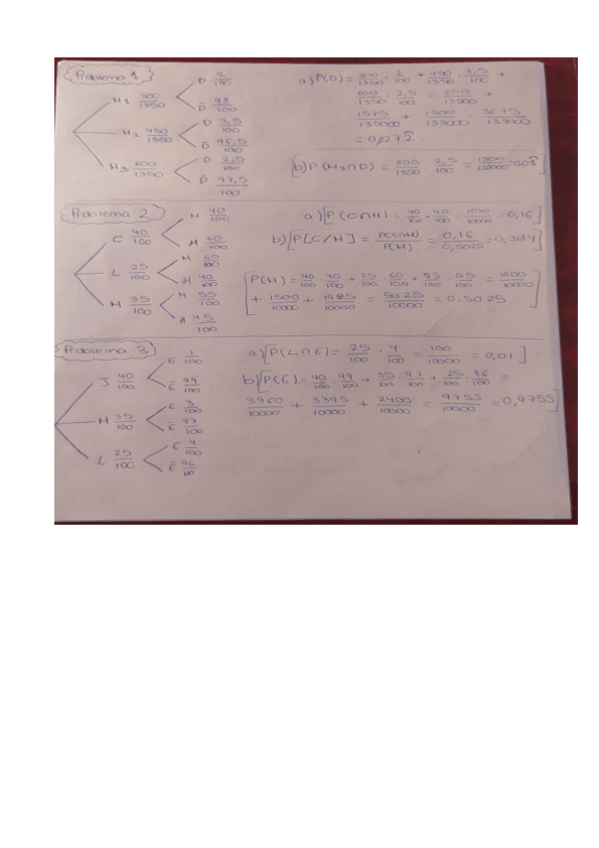 Problema 1
M1 300/1350
D 2/100
D̄ 98/100
M2 450/1350
D 3,5/100
D̄ 96,5/100
M3 600/1350
D 2,5/100
D̄ 97,5/100
a) P(D) = 300/1350 · 2/100 + 450/1350 · 3,5/100 +
600/1350 · 2,5/100 = 600/135000 +
1575/135000 + 1500/135000 = 3675/135000
= 0,0272̂
b) P(M3∩D) = 600/1350 · 2,5/100 = 1500/135000 = 0,01̂
Problema 2
C 40/100
M 40/100
H 60/100
L 25/100
M 60/100
H 40/100
M 35/100
M 55/100
H 45/100
a) P(C∩M) = 40/100 · 40/100 = 1600/10000 = 0,16
b) P[C/M] = P(C∩M)/P(M) = 0,16/0,5025 = 0,3184
P(M) = 40/100 · 40/100 + 25/100 · 60/100 + 35/100 · 55/100 = 1600/10000
+ 1500/10000 + 1925/10000 = 5025/10000 = 0.5025
Problema 3
J 40/100
E 1/100
Ē 99/100
M 35/100
E 3/100
Ē 97/100
L 25/100
E 4/100
Ē 96/100
a) P(L∩E) = 25/100 · 4/100 = 100/10000 = 0,01
b) P(Ē) = 40/100 · 99/100 + 35/100 · 97/100 + 25/100 · 96/100 =
3960/10000 + 3395/10000 + 2400/10000 = 9755/10000 = 0,9755